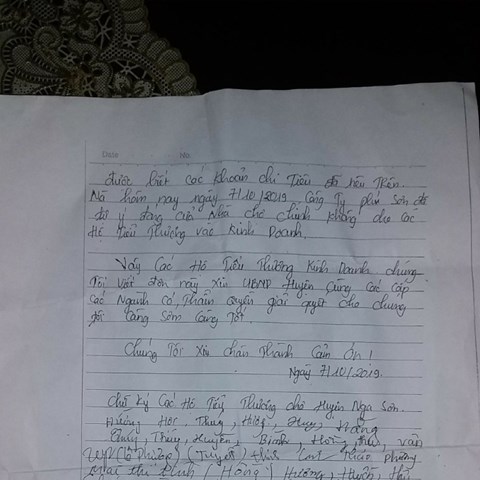 Date No.
được biết các khoản chi Tiêu đã nêu Trên.
Mà hôm nay ngày 7/10/2019, Công Ty phú Sơn đã
cửa Nhà chợ Chính không cho Các
Hộ Tiểu Thương vào Kinh Doanh.
Vậy Các Hộ Tiểu Thương Kinh Doanh chúng
Tôi viết đơn này xin UBND Huyện Cùng Các Cấp
Các Ngành Có Thẩm Quyền giải quyết cho chúng
tôi Càng Sớm Càng Tốt
Chúng Tôi Xin chân Thành Cảm ơn!
Ngày 7/10/2019.
Chữ Ký Các Hộ Tiểu Thương chợ Huyện Nga Sơn.
Hương Hoa, Thuy, Hằng
Thúy, Huyền, Bình, vân
(Tuyết) phương
mai thị Bình (Hồng) Hương, Huyền,